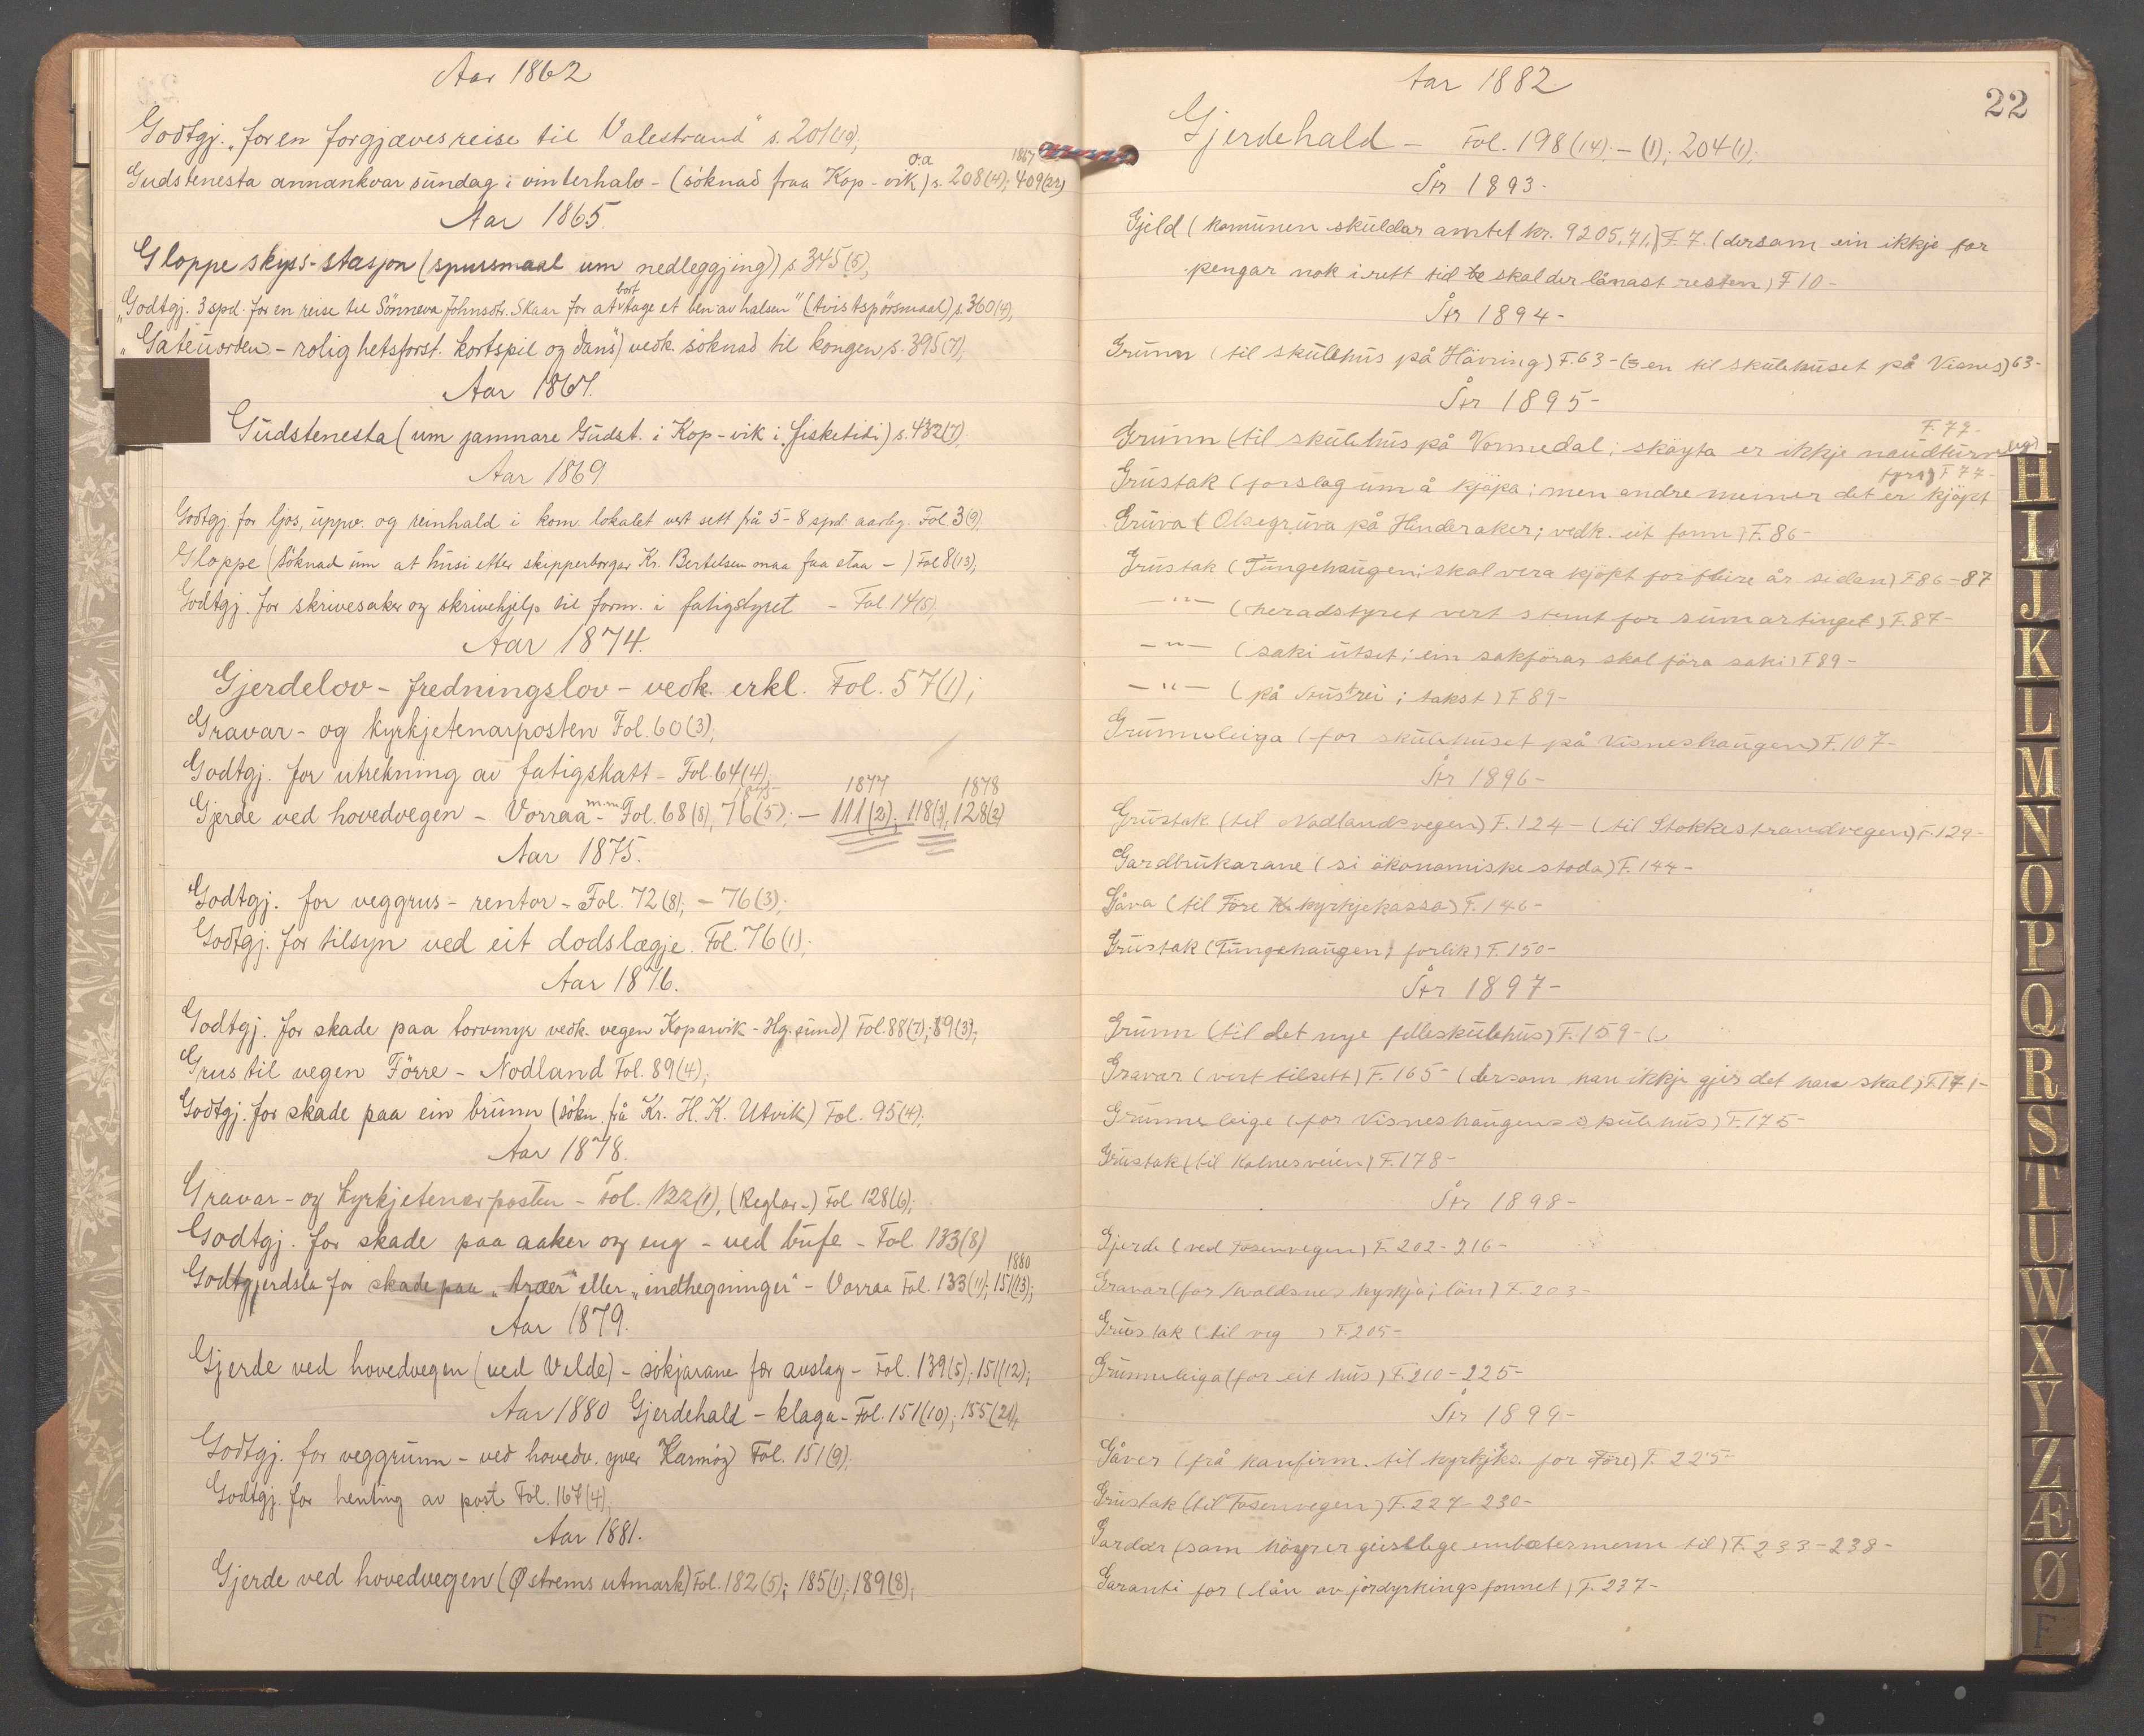 Aar 1862
Godtgj. „for en forgjæves reise til Valestrand" s. 201(10);
o.a 1867
Gudstenesta annankvar sundag i vinterhalv - (söknad fraa Kop-vik) s. 208(4); 409(22)
Aar 1865.
Gloppe skyss-stasjon (spursmaal um nedleggjing) s. 345(5);
„Godtgj. 3 spd. for en reise til Sönneva Johnsdtr. Skaar for at bort tage et ben av halsen" (tvistspörsmaal) s. 360(4);
„Gateuorden - rolighetsforst. kortspil og dans") vedk. söknad til kongen s. 395(7);
Aar 1867.
Gudstenesta (um jamnare Gudst. i Kop-vik i fisketidi) s. 432(7);
Aar 1869
Godtgj. for ljos, uppv. og reinhald i kom. lokalet vert sett frå 5-8 spd. aarleg. Fol. 3(9);
Gloppe (Söknad um at husi etter skipperborgar Kr. Bertelsen maa faa staa -) Fol 8(13);
Godtgj. for skrivesaker og skrivehjelp til form. i fatigstyret - Fol 14(5)
Aar 1874.
Gjerdelov - fredningslov - vedk. erkl. Fol. 57(1);
Gravar- og kyrkjetenarposten Fol. 60(3);
Godtgj. for utrekning av fatigskatt - Fol. 64(4);
1875 1877 1878
Gjerde ved hovedvegen - Vorraa m.m - Fol. 68(8), 76(5); - 111(2); 118(3), 128(2)
Aar 1875.
Godtgj. for veggrus - rentor - Fol. 72(8); - 76(3);
Godtgj. for tilsyn ved eit dodslægje. Fol. 76(1);
Aar 1876.
Godtgj. for skade paa torvmyr vedk. vegen Koparvik - Hg.sund) Fol. 88(7); 89(3);
Grus til vegen Förre - Nodland Fol. 89(4);
Godtgj. for skade paa ein brunn (sökn. frå Kr. H. K. Utvik) Fol. 95(4);
Aar 1878.
Gravar- og kyrkjetenarposten - Fol. 122(1), (Reglar-) Fol 128(6);
Godtgj. for skade paa aaker og eng - ved bufe - Fol. 133(8)
1880
Godtgjerdsla for skade paa „træer" eller „indhegninger" - Vorraa Fol. 133(11); 151(13);
Aar 1879.
Gjerde ved hovedvegen (ved Velde) - sökjarane fær avslag - Fol. 139(5); 151(12);
Aar 1880 Gjerdehald - klaga - Fol. 151(10); 155(21);
Godtgj. for veggrunn - ved hovedv. yver Karmöy) Fol. 151(9);
Godtgj. for henting av post Fol. 167(4),
Aar 1881.
Gjerde ved hovedvegen (Østrems utmark) Fol. 182(5); 185(1); 189(8);
Aar 1882
22
Gjerdehald - Fol. 198(14); - (1); 204(1);
År 1893-
Gjeld (komunen skuldar amtet kr. 9205.71.) F. 7. (dersom ein ikkje før
pengar nok i rett tid skal der lånast resten) F 10-
År 1894-
Grunn (til skulehus på Hävring) F. 63- (en til skulehuset på Visnes) 63-
År 1895-
F. 77-
Grunn (til skulehus på Vormedal; sköyta er ikkje naudturveleg)
fyrr) F 77-
Grustak (forslag um å kjöpa; men andre meiner det er kjöpt
Gruva (Olsegruva på Hinderaker; vedk. eit fonn) F. 86-
Grustak (Tungehaugen; skal vera kjöpt for fleire år sidan) F 86-87
-"- (heradstyret vert stemt for sumartinget) F. 87-
-"- (saki utset; ein sakförar skal föra saki) F 89-
-"- (på; takst) F 89-
Grunnleiga (for skulehuset på Visneshaugen) F. 107-
År 1896-
Grustak (til Nodlandsvegen) F. 124- (til Stokkastrandvegen) F. 129-
Gardbrukarane (si ökonomiske stoda) F. 144-
Gåva (til Före kyrkjekassa) F. 146-
Grustak (Tungehaugen) forlik) F. 150-
År 1897-
Grunn (til det nye felleskulehus) F. 159- (
Gravar (vert tilsett) F. 165- (dersom han ikkje gjer det han skal) F. 171-
Grunnleige (for Visneshaugens skulehus) F. 175-
Grustak (til Kolnesveien) F. 178-
År 1898-
Gjerde (ved Fosenvegen) F. 202-216-
Gravar (for Avaldsnes kyrkja; lön) F. 203-
Grustak (til veg ) F. 205-
Grunnleiga (for eit hus) F. 210-225-
År 1899-
Gåver (frå konfirm. til kyrkjks. for Före) F. 225-
Grustak (til Fosenvegen) F. 227-230-
Gardar (som höyrer geistlege embætsmenn til) F. 233-238-
Garanti for (lån av jordyrkingsfonnet) F. 237-
H
I
J
K
L
M
N
O
P
Q
R
S
T
U
W
X
Y
Z
Æ
Ø
F